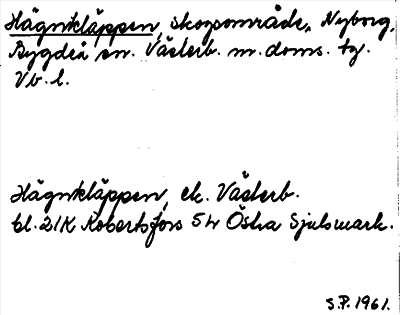 Hägnkläppen, skogsområde, Nyborg,
Bygdeå sn. Västerb. m. doms. tg.
Vb. l.
Hägnkläppen, ek. Västerb.
bl. 21K Robertsfors 5h Östra Sjulsmark.
S.P. 1961.